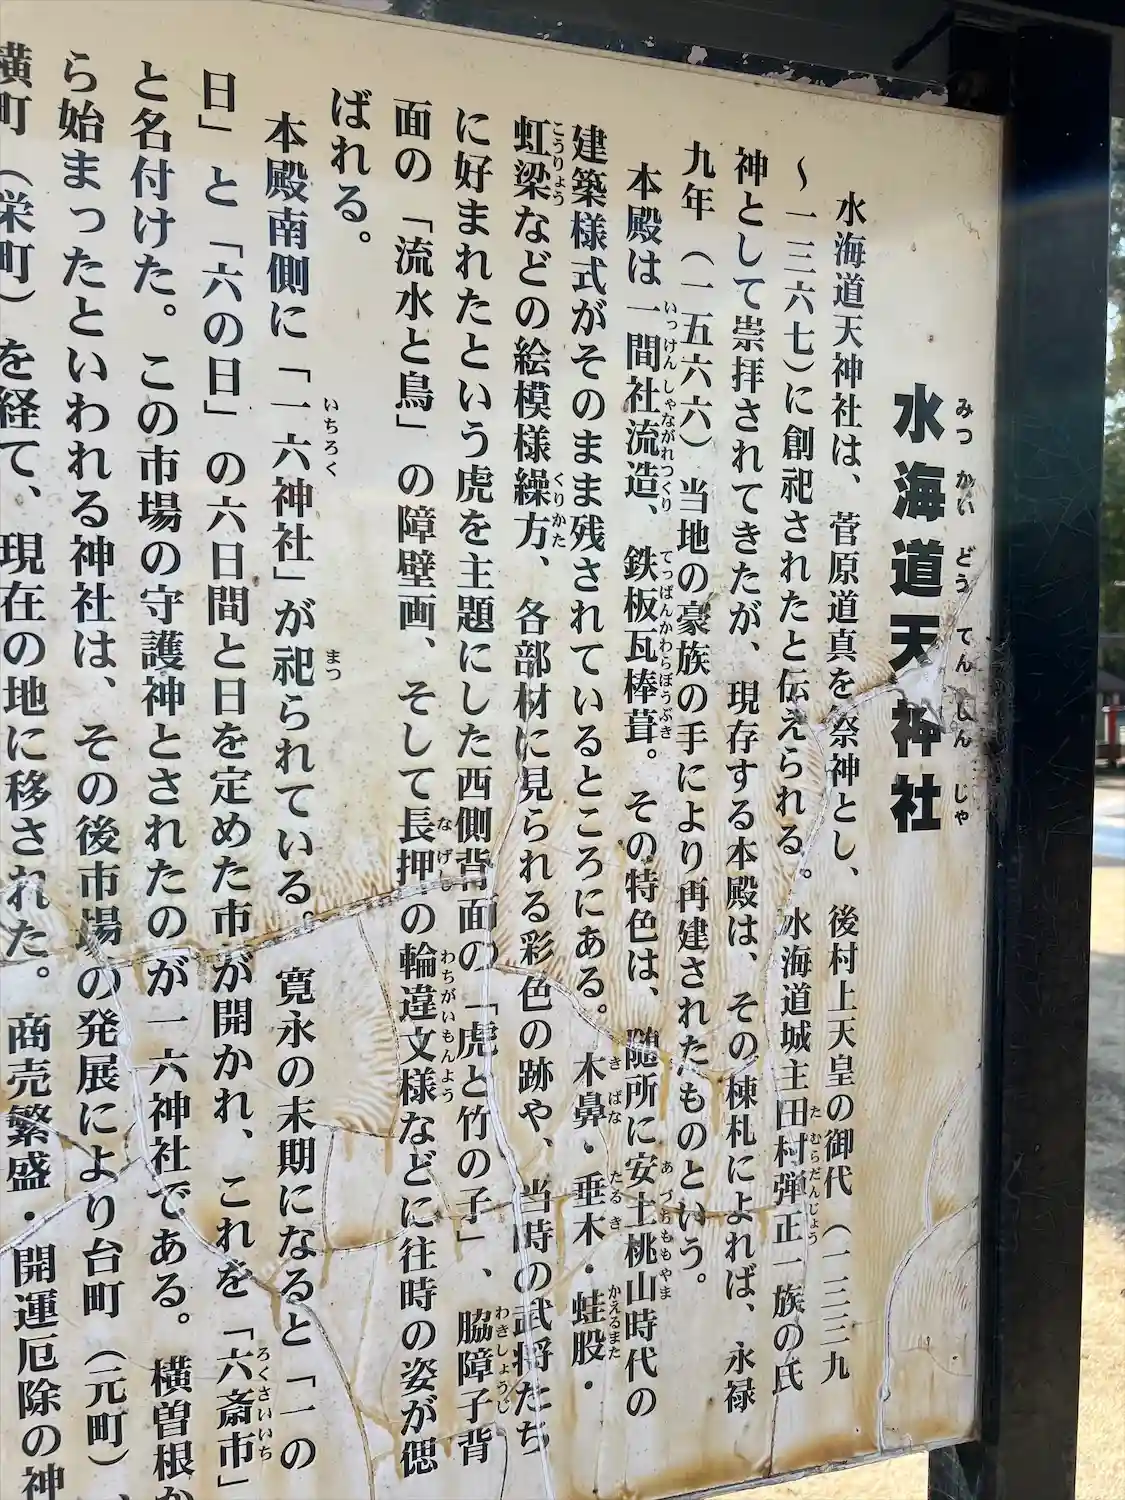 水海道天神社
みつかいどうてんしんじゃ
水海道天神社は、菅原道真を祭神とし、後村上天皇の御代（一三三九
～一三六七)に創祀されたと伝えられる。水海道城主田村弾正一族の氏
たむらだんじょう
神として崇拝されてきたが、現存する本殿は、その棟札によれば、永禄
九年（一五六六）当地の豪族の手により再建されたものという。
本殿は一間社流造、鉄板瓦棒葺。その特色は、随所に安土桃山時代の
いっけんしゃながれつくり てっぱんかわらぼうぶき あづちももやま
建築様式がそのまま残されているところにある。木鼻・垂木・蛙股・
きばな たるき かえるまた
虹梁などの絵模様繰方、各部材に見られる彩色の跡や、当時の武将たち
こうりょう くりかた
に好まれたという虎を主題にした西側背面の「虎と竹の子」、脇障子背
わきしょうじ
面の「流水と鳥」の障壁画、そして長押の輪違文様などに往時の姿が偲
なげし わちがいもんよう
ばれる。
本殿南側に「一六神社」が祀られている。寛永の末期になると「一の
いちろく まつ
日」と「六の日」の六日間と日を定めた市が開かれ、これを「六斎市」
ろくさいいち
と名付けた。この市場の守護神とされたのが一六神社である。横曽根か
ら始まったといわれる神社は、その後市場の発展により台町（元町）、
横町（栄町）を経て、現在の地に移された。商売繁盛・開運厄除の神